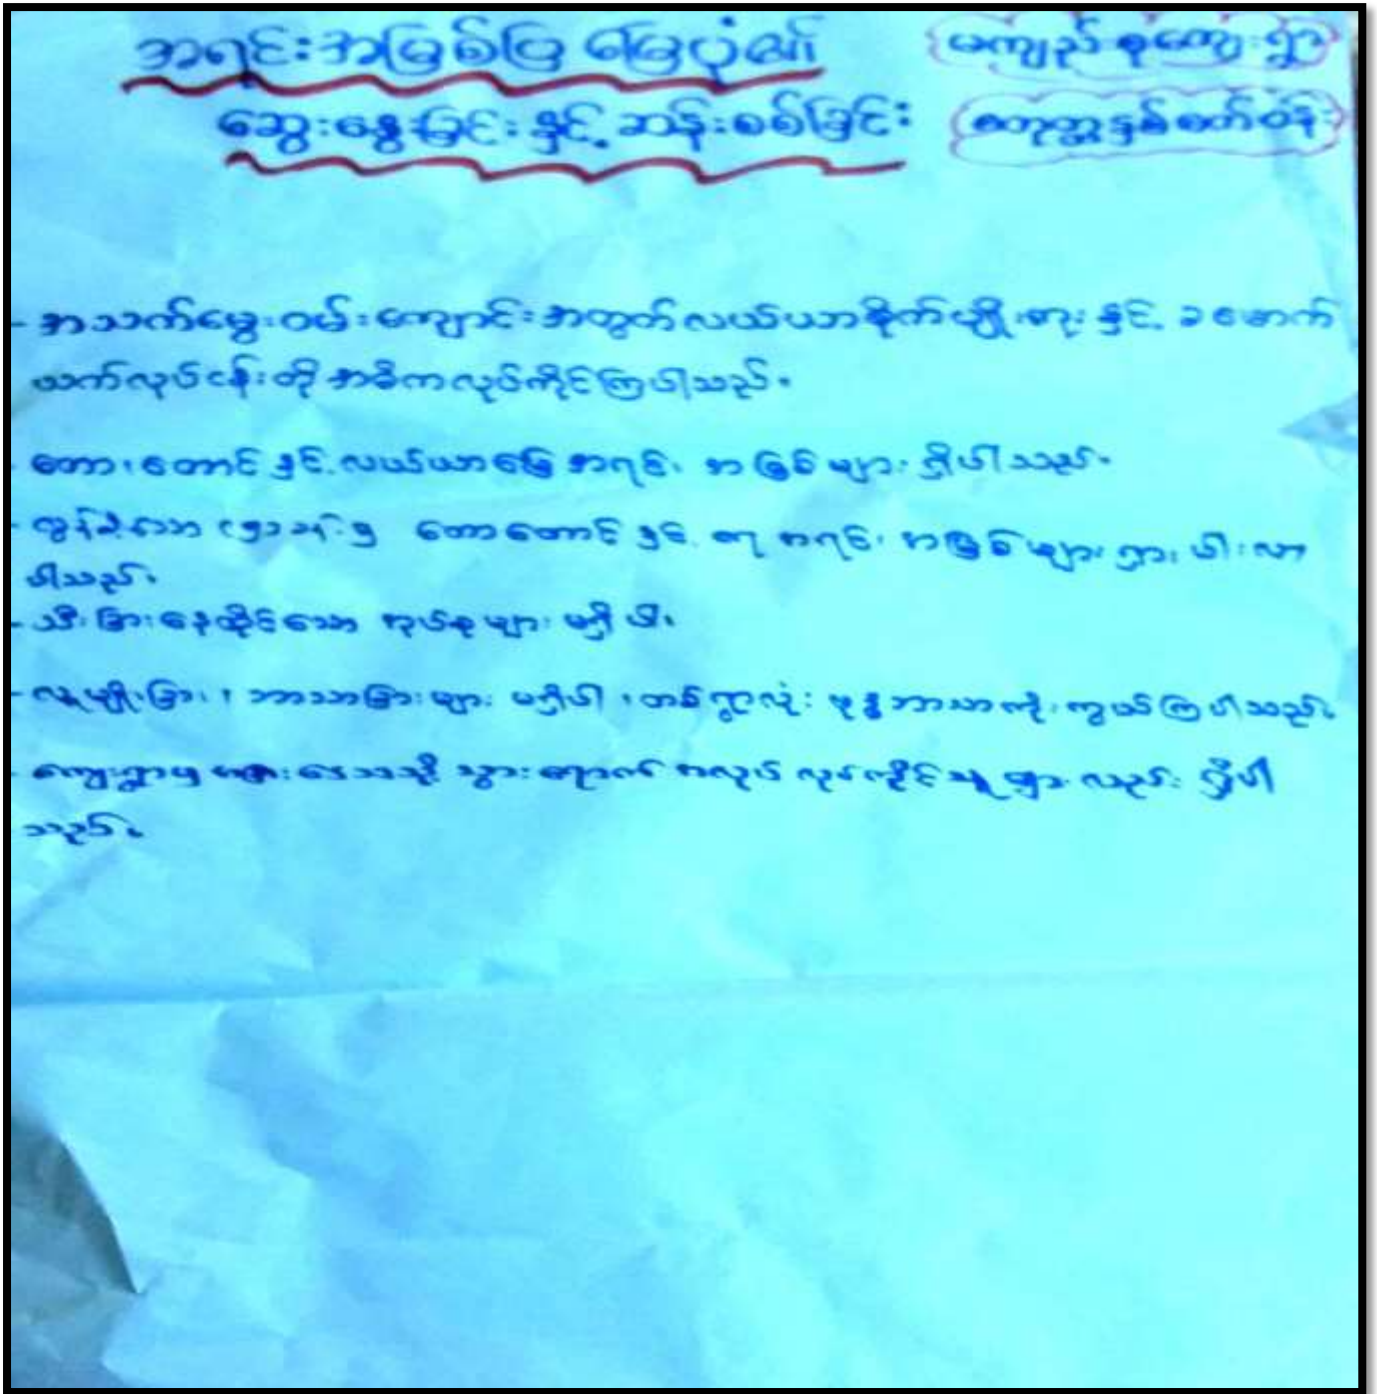 အရင်းအမြစ်ပြ မြေပုံ၏
မကျည်းစုကျေးရွာ
ဆွေးနွေးခြင်းနှင့် ဆန်းစစ်ခြင်း
- အသက်မွေးဝမ်းကျောင်းအတွက် လယ်ယာစိုက်ပျိုးရေးနှင့် ခမောက်
ယက်လုပ်ငန်းတို့ အဓိကလုပ်ကိုင်ကြပါသည်။
- တော၊ တောင်နှင့် လယ်ယာမြေ အရင်း အမြစ်များ ရှိပါသည်။
- လွန်ခဲ့သော တောတောင်နှင့် ရေ အရင်း အမြစ်များ ရှားပါးလာ
ပါသည်။
- သီးခြားနေထိုင်သော အုပ်စုများ မရှိပါ။
- လူမျိုးခြား၊ ဘာသာခြားများ မရှိပါ၊ တစ်ရွာလုံး ဗုဒ္ဓဘာသာကိုးကွယ်ကြပါသည်။
- ကျေးရွာမှ ဒေသသို့ သွားရောက် အလုပ် လုပ်ကိုင်သူများ လည်း ရှိပါ
သည်။